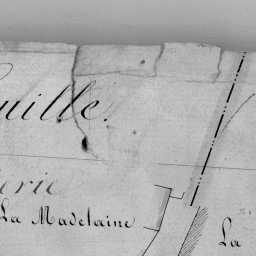 uille.
erie
La Madelaine
La